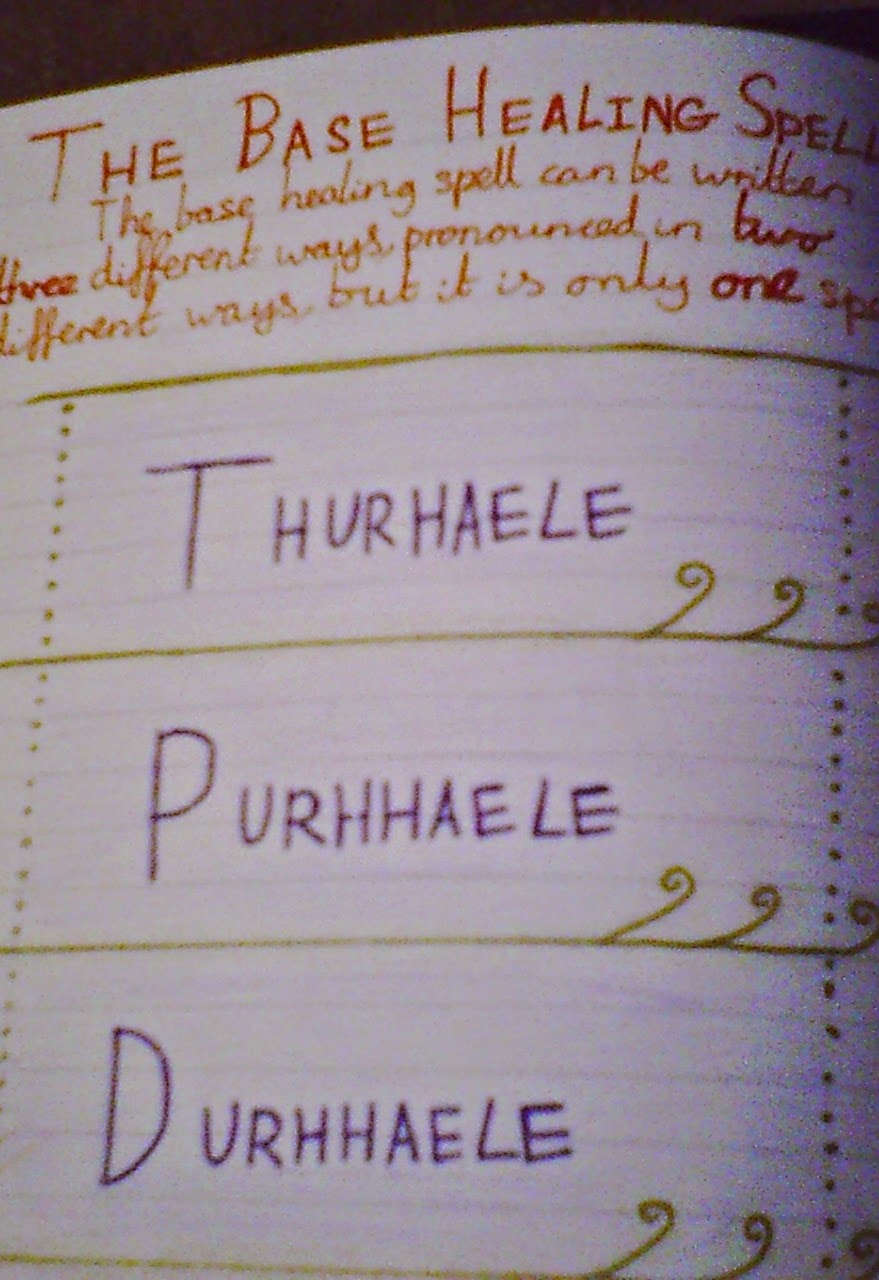 THE BASE HEALING SPELL
The base healing spell can be written
three different ways, pronounced in two
different ways, but it is only one
THURHAELE
PURHHAELE
DURHHAELE